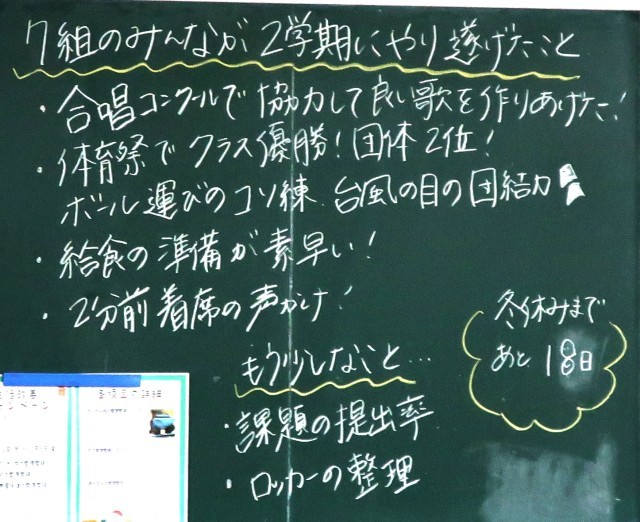 7組のみんなが2学期にやり遂げたこと
・合唱コンクールで協力して良い歌を作りあげた!
・体育祭でクラス優勝!団体2位!
ボール運びのコソ練、台風の目の団結力
・給食の準備が素早い!
・2分前着席の声かけ!
冬休みまで
あと18日
もう少しなこと…
・課題の提出率
・ロッカーの整理